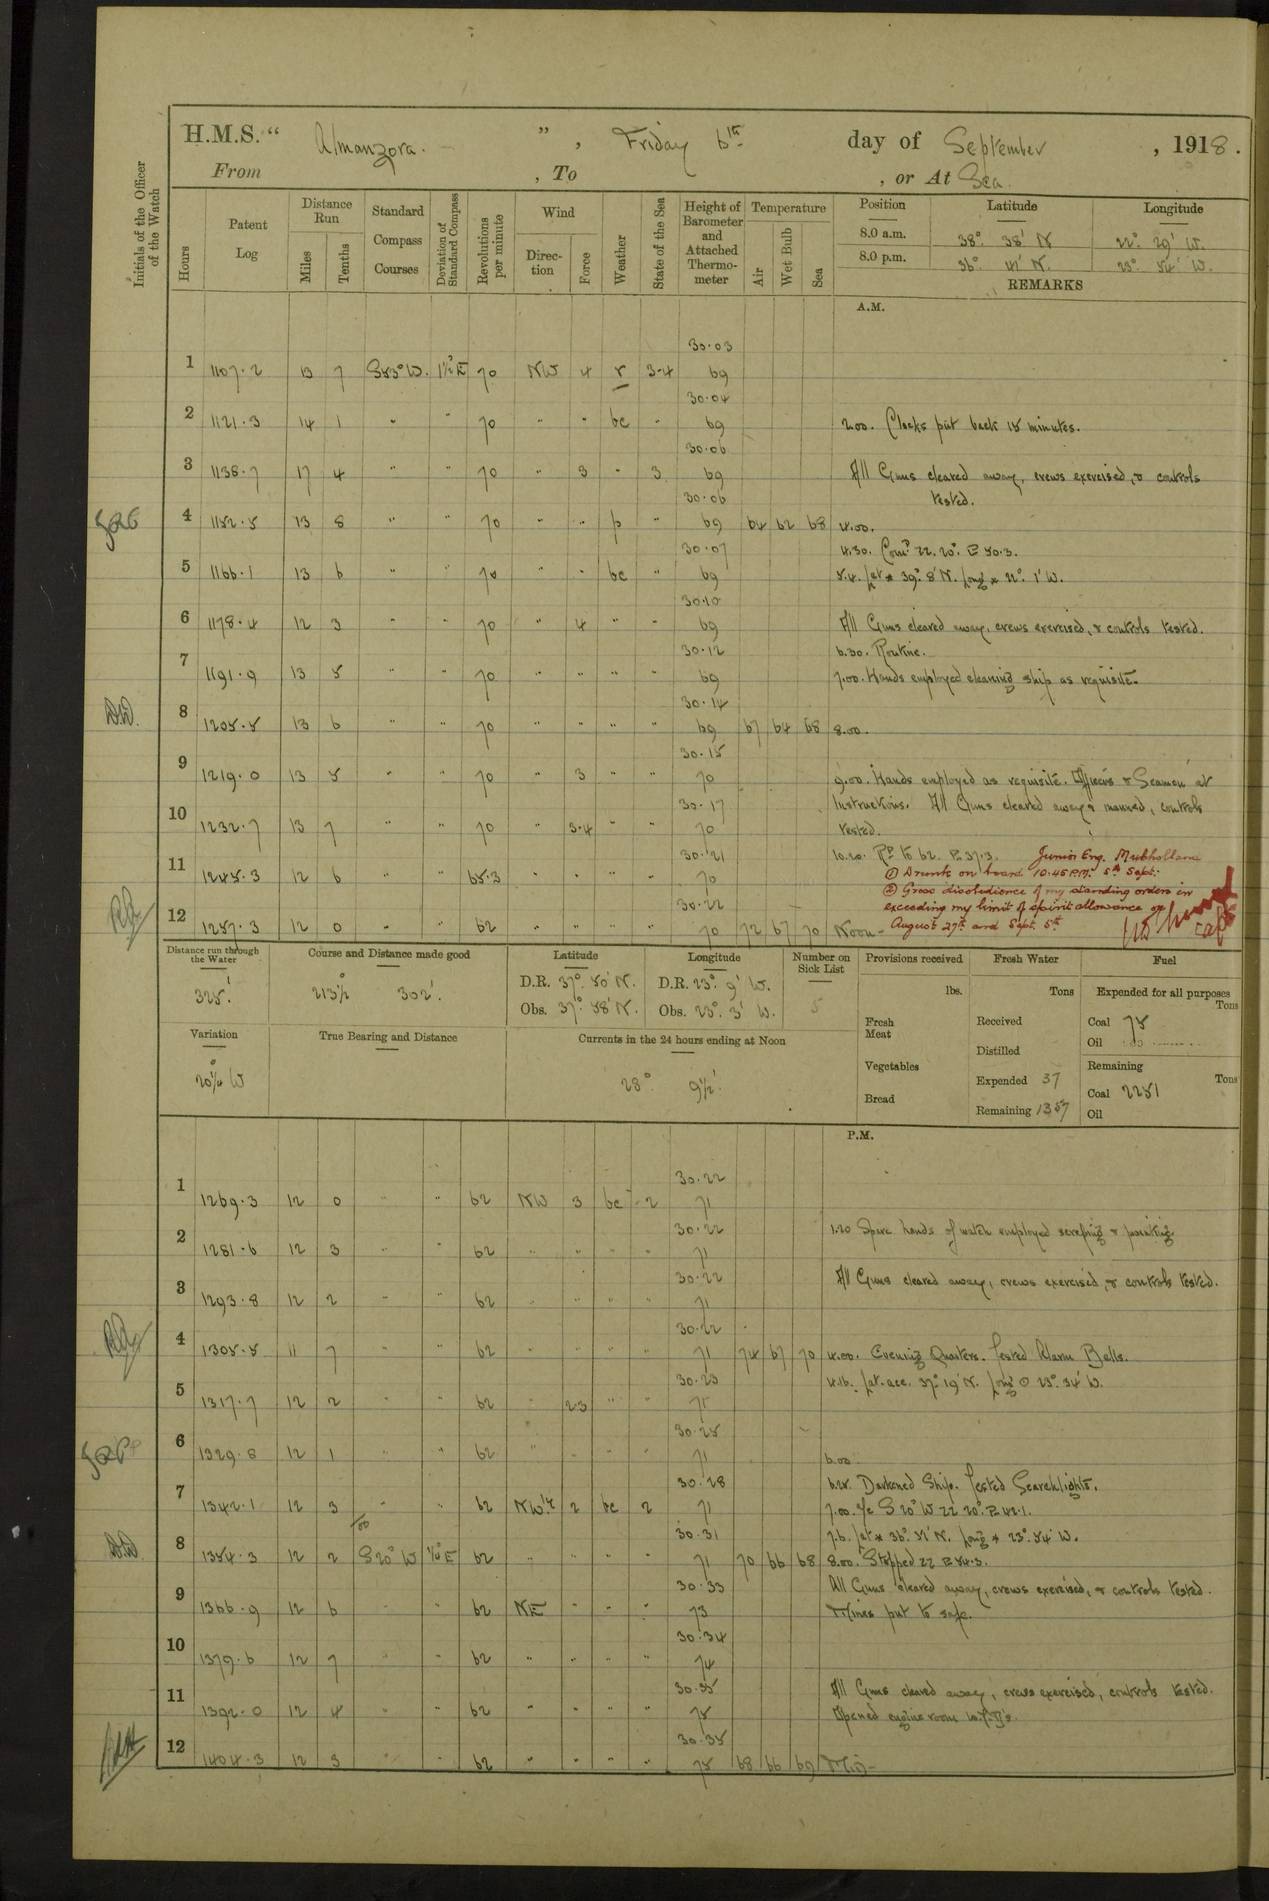 H.M.S. " Almanzora. ", Friday 6th day of September, 1918.
From , To , or At Sea.
Initials of the Officer of the Watch
Hours
Patent Log
Distance Run
Miles
Tenths
Standard Compass Courses
Deviation of Standard Compass
Revolutions per minute
Wind
Direction
Force
Weather
State of the Sea
Height of Barometer and Attached Thermometer
Temperature
Air
Wet Bulb
Sea
Position Latitude Longitude
8.0 a.m. 38° 38' N 22° 29' W.
8.0 p.m. 36° 41' N. 23° 54' W.
REMARKS
A.M.
30.03
1 1107.2 13 7 S33°W. 1½°E 70 NW 4 r 3-4 69
30.04
2 1121.3 14 1 " " 70 " " bc " 69 2.00. Clocks put back 15 minutes.
30.06
3 1138.7 17 4 " " 70 " 3 " 3 69 All Guns cleared away, crews exercised, & controls
30.06 tested.
4 1152.5 13 8 " " 70 " " p " 69 64 62 68 4.00.
30.07 4.30. Comd ZZ. 20°. P 50.3.
5 1166.1 13 6 " " 70 " " bc " 69 5.4. Lat * 39° 8' N. Long * 22° 1' W.
30.10
6 1178.4 12 3 " " 70 " 4 " " 69 All Guns cleared away, crews exercised, & controls tested.
30.12 6.30. Routine.
7 1191.9 13 5 " " 70 " " " " 69 7.00. Hands employed cleaning ship as requisite.
30.14
DW. 8 1205.5 13 6 " " 70 " " " " 69 67 64 68 8.00.
30.15
9 1219.0 13 5 " " 70 " 3 " " 70 9.00. Hands employed as requisite. Officers & Seamen at
30.17 Instructions. All Guns cleared away & manned, controls
10 1232.7 13 7 " " 70 " 3-4 " " 70 tested.
30.21 10.20. Rd to 62. P. 37.3. Junior Eng. Mulholland
11 1245.3 12 6 " " 65.3 " " " " 70 ① Drunk on board 10.45 P.M. 5th Sept:
30.22 ② Gross disobedience of my standing orders in
exceeding my limit of spirit allowance on
12 1257.3 12 0 " " 62 " " " " 70 72 67 70 Noon - August 27th and Sept. 5th Capt
Distance run through the Water
325'.
Course and Distance made good
213½° 302'.
Latitude
D.R. 37° 50' N.
Obs. 37° 58' N.
Longitude
D.R. 23° 9' W.
Obs. 23° 3' W.
Number on Sick List
5
Provisions received
lbs.
Fresh Meat
Vegetables
Bread
Fresh Water
Tons
Received
Distilled
Expended 37
Remaining 1357
Fuel
Expended for all purposes
Tons
Coal 75
Oil
Remaining
Tons
Coal 2251
Oil
Variation
20¼° W
True Bearing and Distance
Currents in the 24 hours ending at Noon
28° 9½'
P.M.
30.22
1 1269.3 12 0 " " 62 NW 3 bc 2 71
30.22 1.20 Spare hands of watch employed scraping & painting.
2 1281.6 12 3 " " 62 " " " " 71
30.22 All Guns cleared away, crews exercised, & controls tested.
3 1293.8 12 2 " " 62 " " " " 71
30.22
4 1305.5 11 7 " " 62 " " " " 71 74 67 70 4.00. Evening Quarters. Tested Alarm Bells.
30.23 4.16. Lat. acc. 37° 19' N. Long ⊙ 23° 34' W.
5 1317.7 12 2 " " 62 " 2.3 " " 71
30.25
6 1329.8 12 1 " " 62 " " " " 71 6.00
30.28 6.25. Darkened Ship. Tested Searchlights.
7 1342.1 12 3 " " 62 NW'ly 2 bc 2 71 7.00. a/c S 20° W ZZ 20°. P. 42.1.
30.31 7.6. Lat * 36° 51' N. Long * 23° 54' W.
DW. 8 1354.3 12 2 S 20° W 1½°E 62 " " " " 71 70 66 68 8.00. Stopped ZZ P. 54.3.
30.33 All Guns cleared away, crews exercised, & controls tested.
9 1366.9 12 6 62 NE " " " 73 Mines put to safe.
30.34
10 1379.6 12 7 " " 62 " " " " 74
30.35 All Guns cleared away, crews exercised, controls tested.
11 1392.0 12 4 " " 62 " " " " 75 Opened engine room W.T.D's.
30.35
12 1404.3 12 3 " " 62 " " " " 75 68 66 69 Mid-